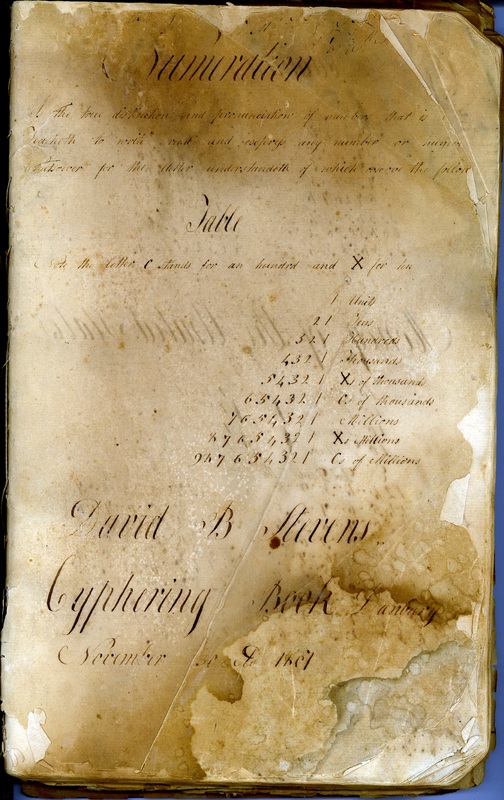 Numeration
Is the true distinction and pronunciation of numbers that is
teacheth to write read and express any number or
whatsoever for the better understandeth of which observe the follow
Table
Note the letter C stands for an hundred and X for ten
1 Units
21 Tens
321 Hundreds
4321 Thousands
54321 Xs of thousands
654321 Cs of thousands
7654321 Millions
87654321 Xs Millions
987654321 Cs of Millions
David B Stevens
Cyphering Book Danbury
November